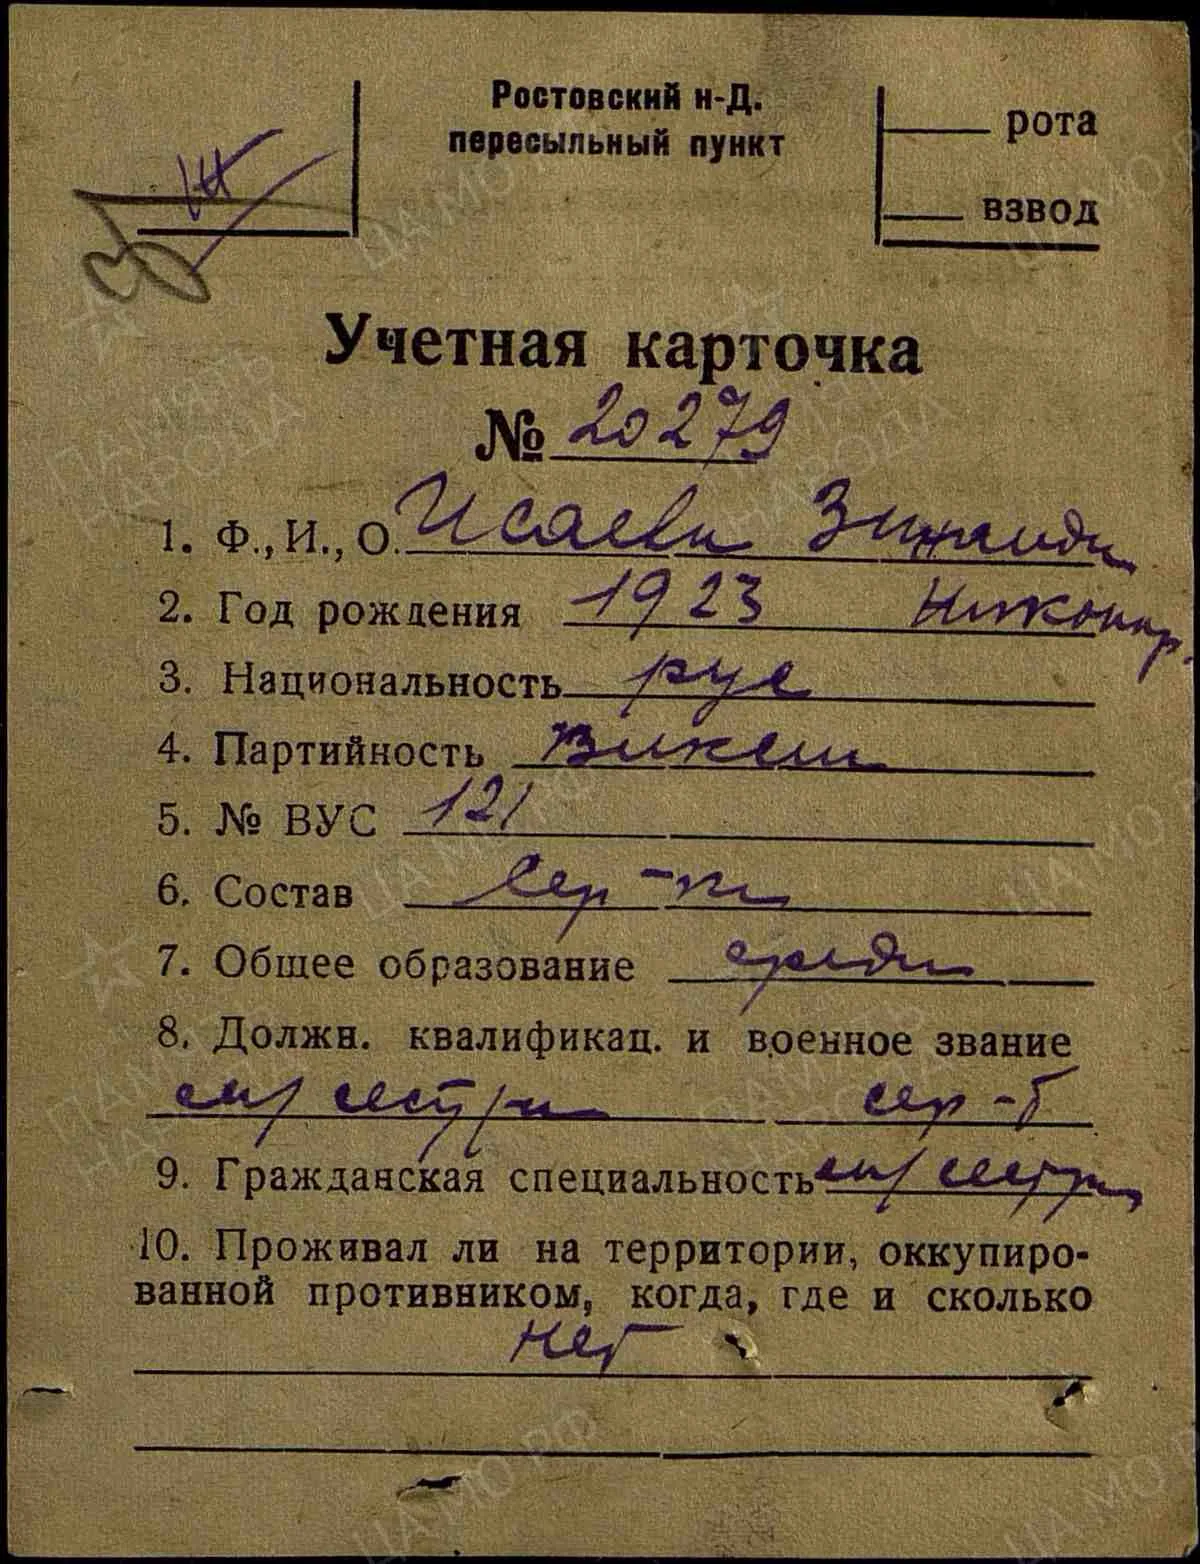 Ростовский н-Д.
пересыльный пункт
рота
взвод
Учетная карточка
№ 20279
1. Ф., И., О. Исаева Зинаида
2. Год рождения 1923 Никонор.
3. Национальность рус
4. Партийность влксм
5. № ВУС 121
6. Состав сер-ки
7. Общее образование средн
8. Должн. квалификац. и военное звание
мед сестра сер-т
9. Гражданская специальность мед сестра
10. Проживал ли на территории, оккупиро-
ванной противником, когда, где и сколько
нет
ПАМЯТЬ НАРОДА
ЦА МО РФ